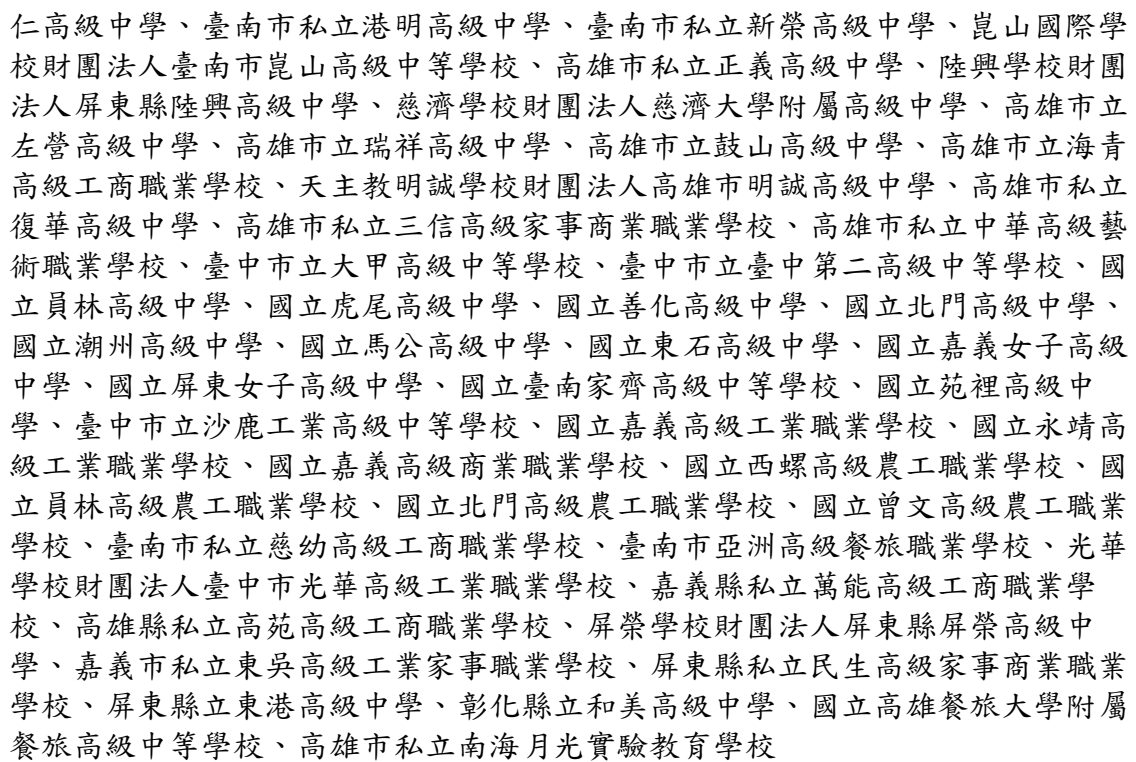 仁高級中學、臺南市私立港明高級中學、臺南市私立新榮高級中學、崑山國際學
校財團法人臺南市崑山高級中等學校、高雄市私立正義高級中學、陸興學校財團
法人屏東縣陸興高級中學、慈濟學校財團法人慈濟大學附屬高級中學、高雄市立
左營高級中學、高雄市立瑞祥高級中學、高雄市立鼓山高級中學、高雄市立海青
高級工商職業學校、天主教明誠學校財團法人高雄市明誠高級中學、高雄市私立
復華高級中學、高雄市私立三信高級家事商業職業學校、高雄市私立中華高級藝
術職業學校、臺中市立大甲高級中等學校、臺中市立臺中第二高級中等學校、國
立員林高級中學、國立虎尾高級中學、國立善化高級中學、國立北門高級中學、
國立潮州高級中學、國立馬公高級中學、國立東石高級中學、國立嘉義女子高級
中學、國立屏東女子高級中學、國立臺南家齊高級中等學校、國立苑裡高級中
學、臺中市立沙鹿工業高級中等學校、國立嘉義高級工業職業學校、國立永靖高
級工業職業學校、國立嘉義高級商業職業學校、國立西螺高級農工職業學校、國
立員林高級農工職業學校、國立北門高級農工職業學校、國立曾文高級農工職業
學校、臺南市私立慈幼高級工商職業學校、臺南市亞洲高級餐旅職業學校、光華
學校財團法人臺中市光華高級工業職業學校、嘉義縣私立萬能高級工商職業學
校、高雄縣私立高苑高級工商職業學校、屏榮學校財團法人屏東縣屏榮高級中
學、嘉義市私立東吳高級工業家事職業學校、屏東縣私立民生高級家事商業職業
學校、屏東縣立東港高級中學、彰化縣立和美高級中學、國立高雄餐旅大學附屬
餐旅高級中等學校、高雄市私立南海月光實驗教育學校